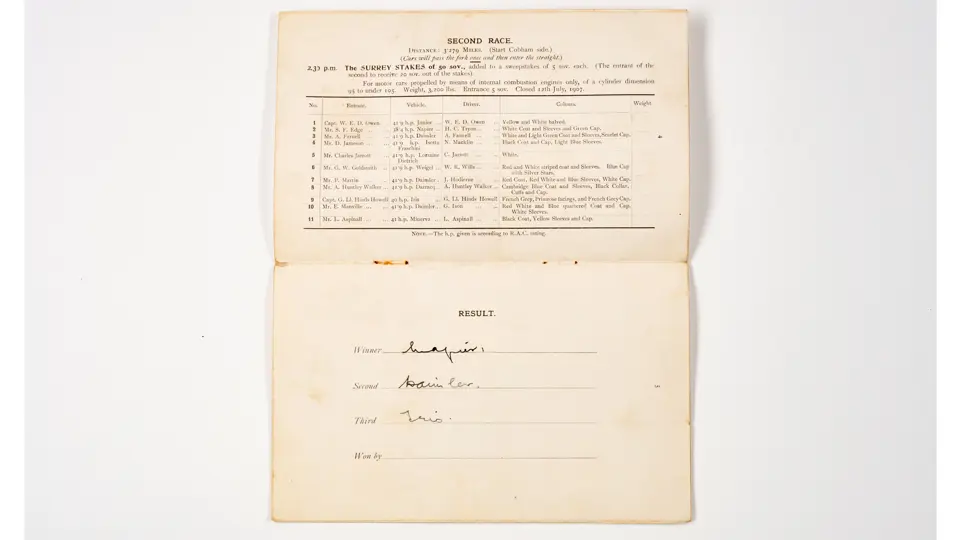 SECOND RACE.
DISTANCE: 3·179 MILES. (Start Cobham side.)
(Cars will pass the fork once and then enter the straight.)
2.30 p.m. The SURREY STAKES of 50 sov., added to a sweepstakes of 5 sov. each. (The entrant of the
second to receive 20 sov. out of the stakes)
For motor cars propelled by means of internal combustion engines only, of a cylinder dimension
95 to under 125. Weight, 3,200 lbs. Entrance 5 sov. Closed 12th July, 1907.
No. Entrant. Vehicle. Driver. Colours. Weight.
1 Capt. W. E. D. Owen 41·9 h.p. Junior W. E. D. Owen Yellow and White halved.
2 Mr. S. F. Edge 38·4 h.p. Napier H. C. Tryon White Coat and Sleeves and Green Cap.
3 Mr. A. Farnell 41·9 h.p. Daimler A. Farnell White and Light Green Coat and Sleeves, Scarlet Cap.
4 Mr. D. Jameson 41·9 h.p. Isotta N. Macklin Black Coat and Cap, Light Blue Sleeves.
Fraschini
5 Mr. Charles Jarrott 41·9 h.p. Lorraine C. Jarrott White.
Dietrich
6 Mr. G. W. Goldsmith 41·9 h.p. Weigel W. R. Wills Red and White striped coat and Sleeves. Blue Cap
with Silver Stars.
7 Mr. P. Martin 41·9 h.p. Daimler J. Hodierne Red Coat, Red White and Blue Sleeves, White Cap.
8 Mr. A. Huntley Walker 41·9 h.p. Darracq A. Huntley Walker Cambridge Blue Coat and Sleeves, Black Collar,
Cuffs and Cap.
9 Capt. G. Ll. Hinds Howell 40 h.p. Iris G. Ll. Hinds Howell French Grey, Primrose facings, and French Grey Cap.
10 Mr. E. Manville 41·9 h.p. Daimler G. Ison Red White and Blue quartered Coat and Cap,
White Sleeves.
11 Mr. L. Aspinall 41 h.p. Minerva L. Aspinall Black Coat, Yellow Sleeves and Cap.
NOTE.—The h.p. given is according to R.A.C. rating.
RESULT.
Winner Napier.
Second Daimler.
Third Iris.
Won by